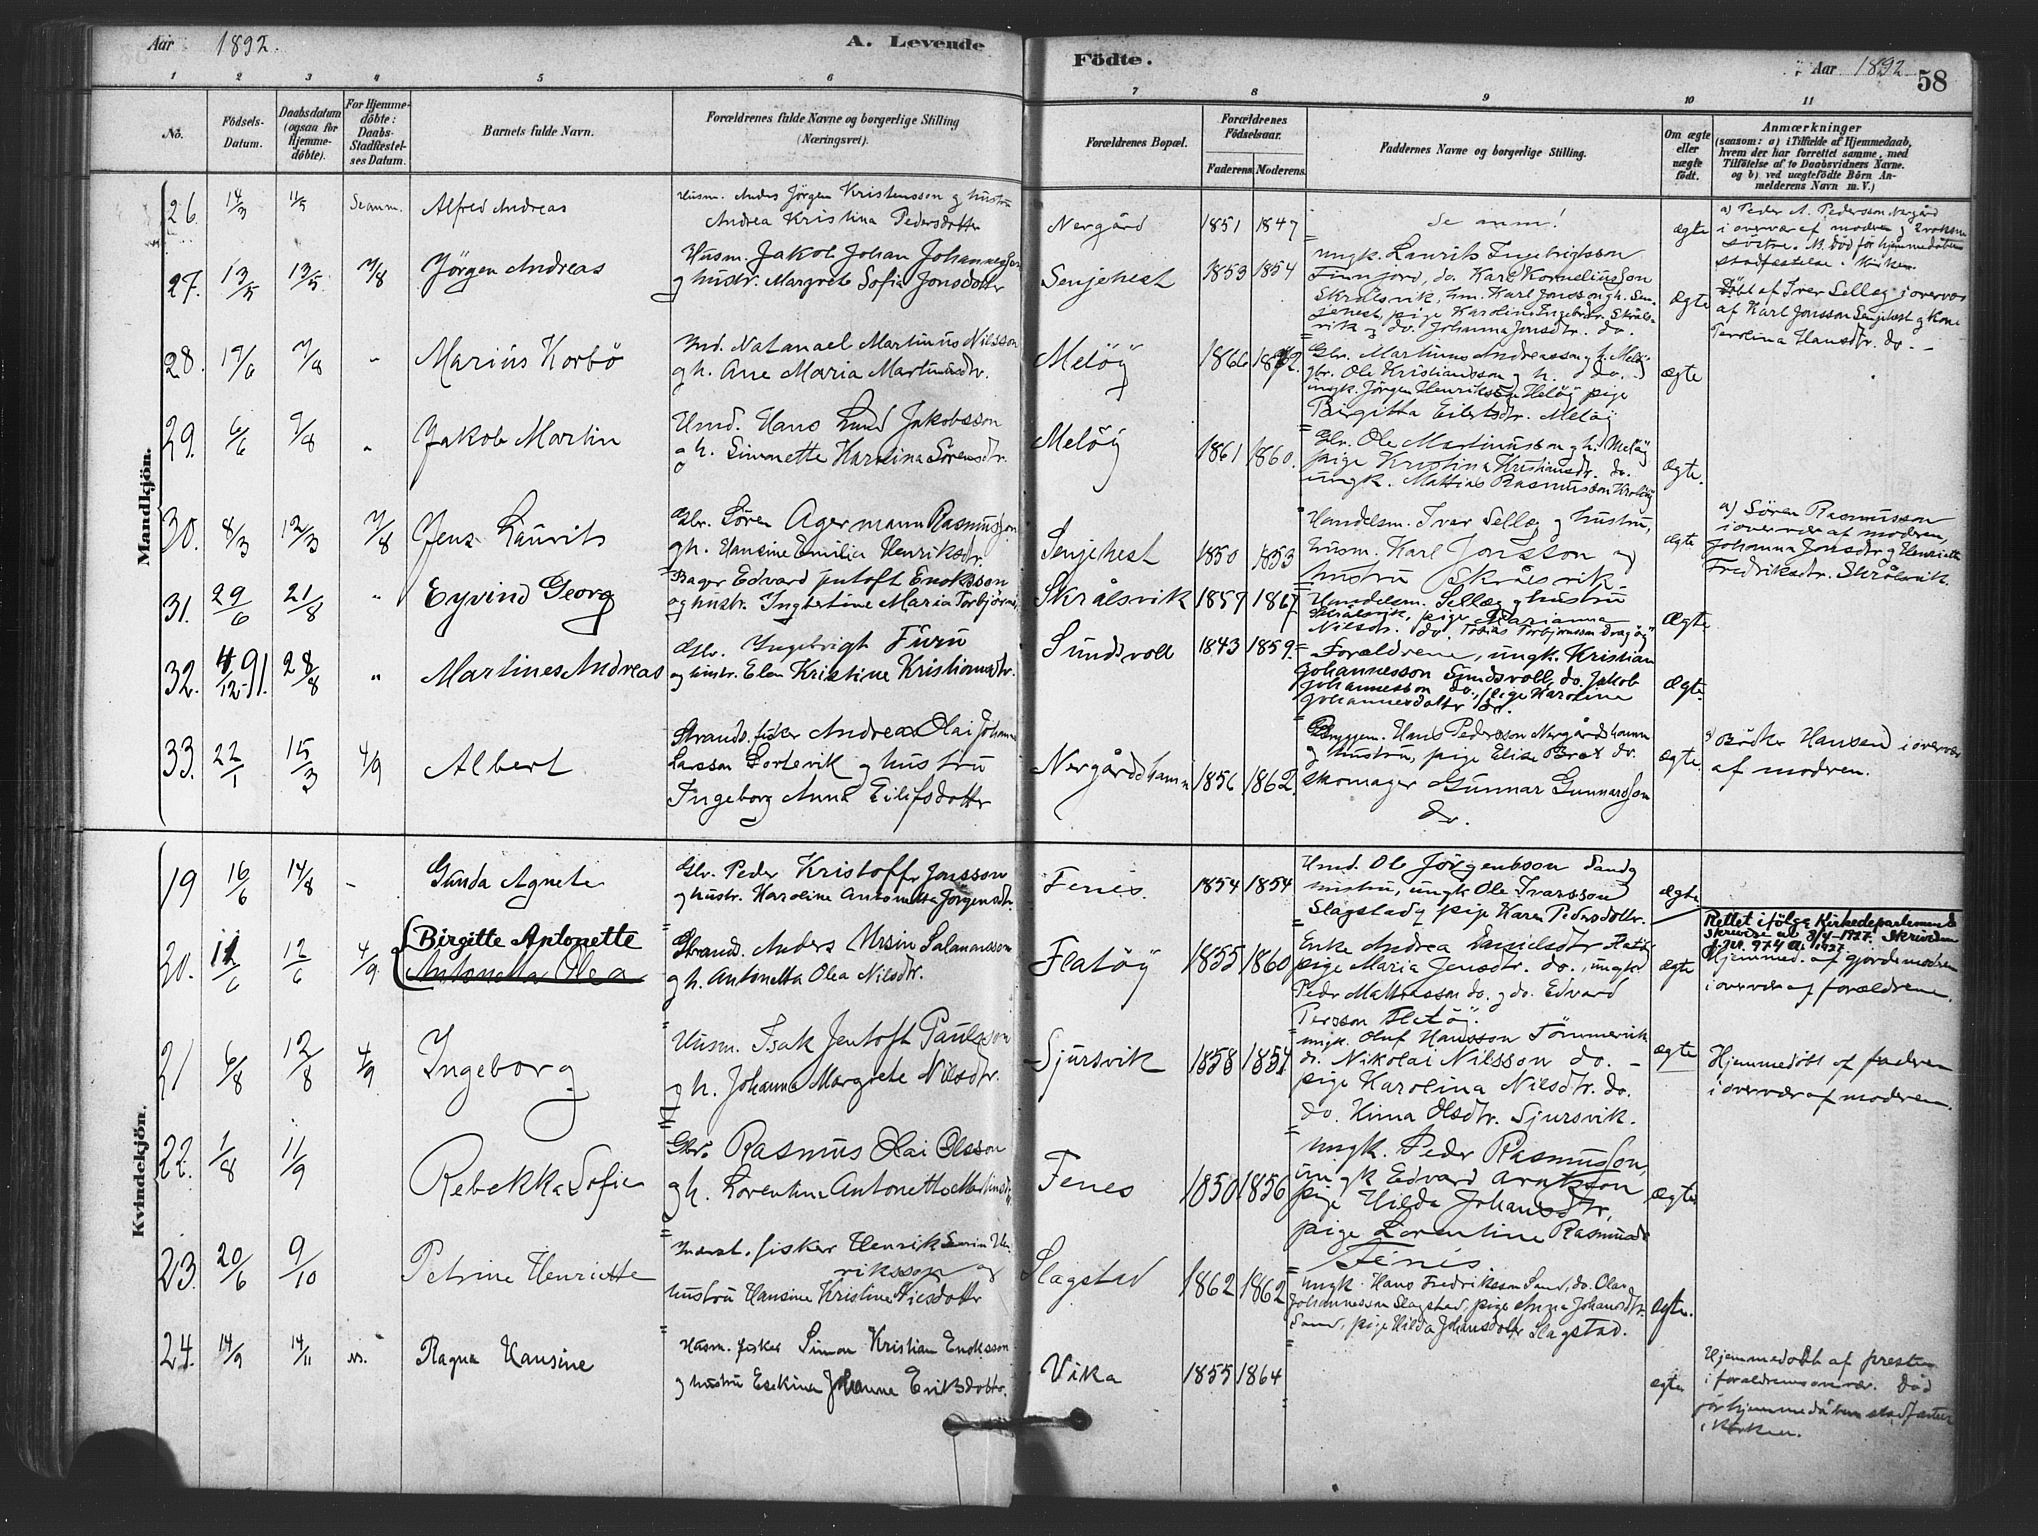 Aar 1892.
A. Levende
Födte.
Aar 1892
58
1 2 3 4 5 6 7 8 9 10 11
No.
Födsels-
Datum.
Daabsdatum
(ogsaa for
Hjemme-
döbte).
For Hjemme-
döbte:
Daabs-
Stadfæstel-
ses Datum.
Barnets fulde Navn.
Forældrenes fulde Navne og borgerlige Stilling
(Næringsvei).
Forældrenes Bopæl.
Forældrenes
Födselsaar.
Faderens. Moderens.
Faddernes Navne og borgerlige Stilling.
Om ægte
eller
uægte
født.
Anmærkninger
(saasom: a) i Tilfælde af Hjemmedaab,
hvem der har forrettet samme, med
Tilföielse af to Daabsvidners Navne.
og b) ved uægtefödte Börn An-
melderens Navn m. V.)
Mandkjön.
26. 14/3
Alfred Andreas
Husm. Anders Jörgen Kristensson og hustru
Andrea Kristina Pedersdatter
Nergård
1851 1847
Se anm!
ægte
a) Peder A. Pedersson Nergård
i overvær af modren og
söstre. NB. död för hjemmedåbens
stadfestelse i kirken.
27. 13/5 13/5 7/8
Jörgen Andreas
Husm. Jakob Johan Johannesson
og hustr. Margrete Sofia Jonsdatter
Senjehest
1853 1854
ungk. Laurits Ingebrigtsson
Finnfjord, do. Karl Korneliusson
Skrålsvik, hm. Karl Jonsson og h. Sen-
jehest, pige Karolina Ingebrtdtr. Skråls-
vik og do. Johanna Jonsdtr. do.
ægte
Döbt af Iver Sellæg i overvær
af Karl Jonsson Senjehest og kone
Hansdtr. do.
28. 19/6 7/8 "
Marius Korbö
Ind. Natanael Martinus Nilsson
og h. Ane Maria Martinusdtr.
Melöy
1866 1872.
Gbr. Martinus Andreasson og h. Melöy
gbr. Ole Kristiansson og h. do.
ungk. Jörgen Henriksson Melöy pige
Birgitta Eilertsdtr. Melöy
ægte
29. 6/6 7/8 "
Jakob Martin
Hmd. Hans Lund Jakobsson
og h. Simonette Karolina Sörensdtr.
Melöy
1861 1860.
Gbr. Ole Martinusson og h. Melöy
pige Kristina Kristiansdtr. do.
ungk. Mattias Rasmusson
ægte.
30. 8/3 12/3 7/8
Jens Laurits
Gbr. Sören Agermann Rasmusson
og h. Hansine Emilie Henriksdtr.
Senjehest
1850 1853
Handelsm. Iver Sellæg og hustru,
husm. Karl Jonsson og
hustru Skrålsvik
ægte
a) Sören Rasmusson
i overvær af modren,
Johanna Jonsdtr og Henriette
Fredriksdtr. Skrålsvik.
31. 29/6 21/8 "
Eyvind Georg
Bager Edvard Jentoft Enoksson
og hustr. Ingbertine Maria Torbjörns
Skrålsvik
1857 1867
Handelsm. Sellæg og hustru
Skrålsvik, pige Marianna
Nilsdr. do. Tobias Torbjörnsson
ægte
32. 4/12-91. 28/8 "
Martines Andreas
Gbr. Ingebrigt Furu
og hustr. Elen Kristine Kristiansdtr.
Sundsvoll
1843 1859.
Forældrene, ungk. Kristian
Johannesson Sundsvoll, do. Jakob
Johannesson do., pige Karoline
Johannesdatter do.
ægte
33. 22/1 15/3 4/9
Albert
Strands. fisker Andreas Olai Johan
Larsson Sortevik og hustru
Ingeborg Anna Eilifsdatter
Nergårdshamn
1856 1862.
Bryggem. Hans Pedersson Nergårdshamn
og hustru, pige Elise Brox do.
skomager Gunnar Gunnarsson
do.
ægte.
Bödker Hansen i overvær
af modren.
Kvindekjön.
19 16/6 14/8 -
Gunda Agnete
Gbr. Peder Kristoffer Jonsson
og hustr. Karoline Antonetta Jörgensdtr.
Fenes.
1854 1854
Hmd. Ole Jörgensson Sand og
hustru, ungk Ole Ivarsson
Slagstad og pige Karen Pedersdatter.
ægte
20. 12/6 12/6 4/9
Birgitte Antonette
Antonetta Olea
Strand. Anders Ursin Salamonsson
og h. Antonetta Olea Nilsdtr.
Flatöy
1855 1860
Enke Andrea Danielsdtr Flatöy
pige Maria Jensdtr. do., ungkr
Peder Mathiasson do. og do. Edvard
Persson Flatöy.
ægte
Rettet ifölge Kirkedepartements
Skrivelse av 9/4-1927. Skrivelsen
J.nr. 974 A. 1927.
Hjemmed. af gjordemodren
i overvær af forældrene.
21 6/8 12/8 4/9
Ingeborg
Husm. Isak Jentoft Paulsson
og h. Johanna Margrete Nilsdtr.
Sjursvik
1858 1854
ungk. Oluf Hansson Tömmervik
do. Nikolai Nilsson do.
pige Karolina Nilsdtr. do.
do. Kima Olsdtr. Sjursvik.
ægte
Hjemmedöbt af faderen
i overvær af modren.
22. 1/8 11/9
Rebekka Sofie
Gbr. Rasmus Olai Olsson
og h. Lorentine Antonette
Fenes
1850 1856
ungk. Peder Rasmusson,
ungk Edvard Arntsson
pige Hilda Johansdtr,
pige Lorentine Rasmusd
Fenes
ægte
23. 20/6 9/10
Petrine Henriette
fisker Henrik Hen-
riksson og
hustru Hansine Kristine Nilsdatter
Slagstad
1862 1862
ungk. Hans Fredriksson Sand, do. Olar
Johannesson Slagstad, pige Anna Johansdtr.
Sand, pige Hilda Johansdatter Slagstad.
ægte.
24. 14/9 14/11 NB.
Ragna Hansine
Husm. fisker Simon Kristian Enoksson
og hustru Esekina Johanne Eriksdatter.
Vika
1855 1864
ægte
Hjemmedöbt af presten
i forældrenes overvær. Död
för hjemmedåbens stadfæstelse
i kirken.